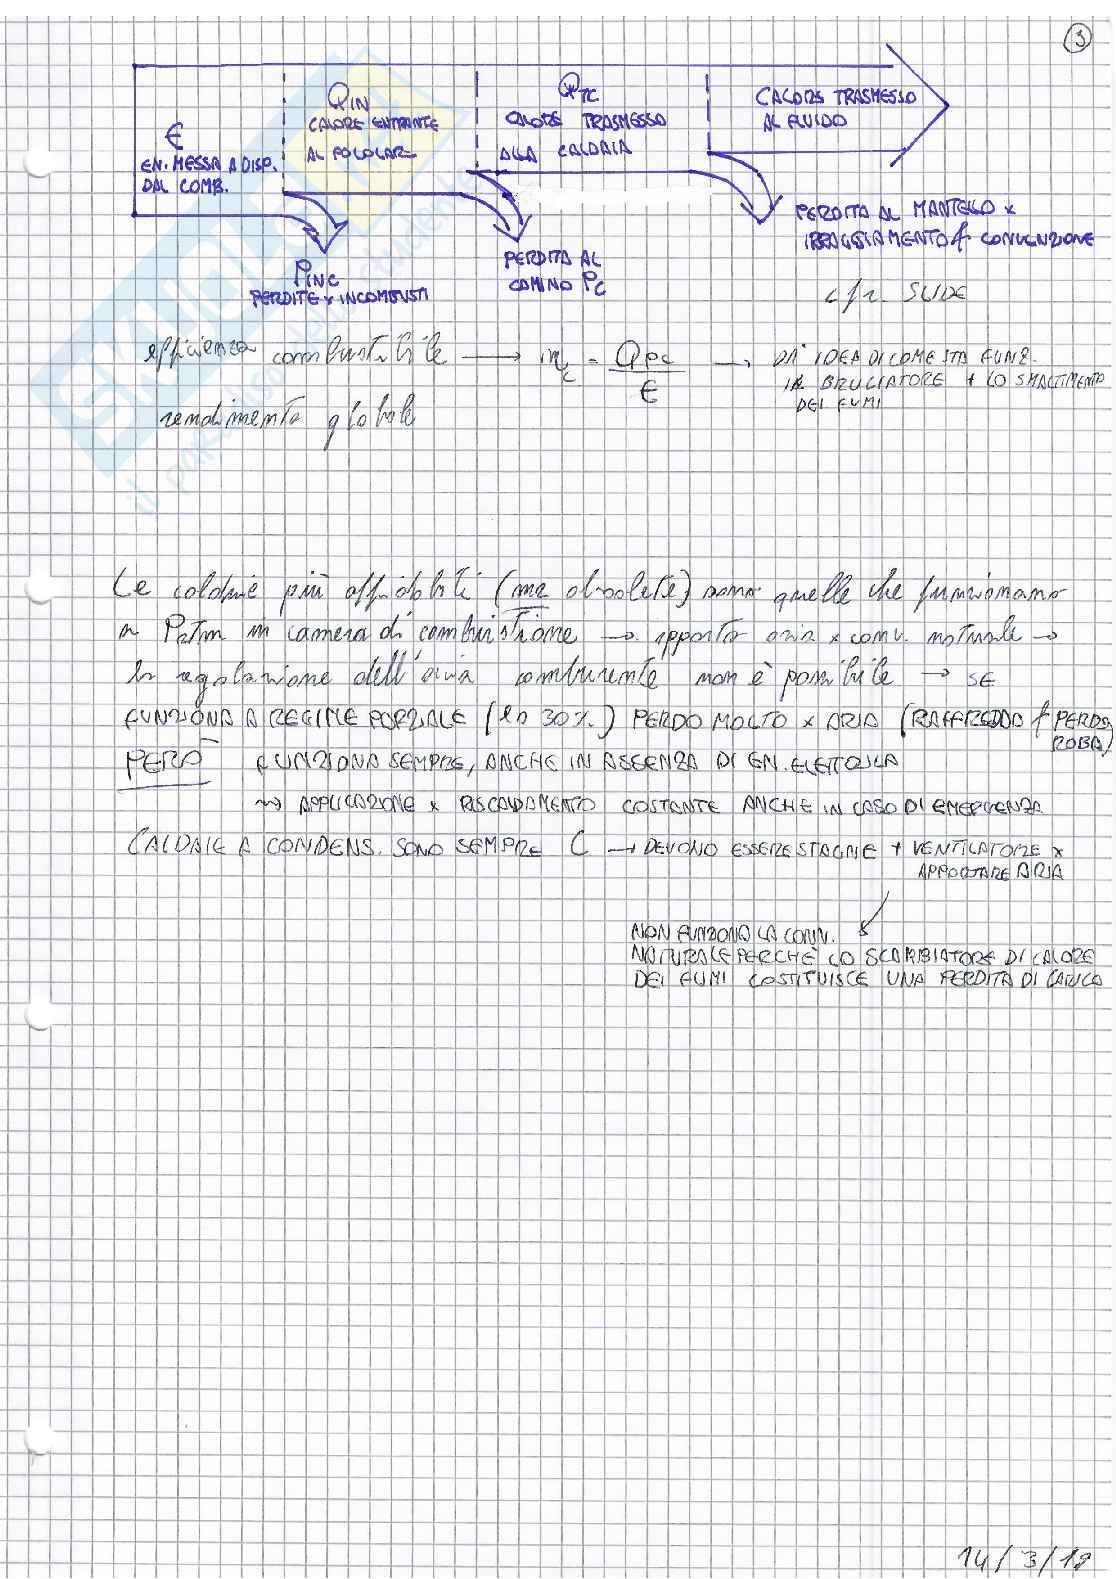 3
Є
EN. MESSA A DISP.
DAL COMB.
QIN
CALORE ENTRANTE
AL FOCOLARE
QTC
CALORE TRASMESSO
ALLA CALDAIA
CALORE TRASMESSO
AL FLUIDO
PINC
PERDITE x INCOMBUSTI
PERDITA AL
CAMINO PC
PERDITA AL MANTELLO x
IRRAGGIAMENTO & CONVENZIONE
cfr. SLIDE
efficienza combustibile → ηc = QPC / Є → DA' IDEA DI COME STA FUNZ.
IL BRUCIATORE + LO SMALTIMENTO
DEI FUMI
rendimento globale
Le caldaie più affidabili (ma obsolete) sono quelle che funzionano
a Patm in camera di combustione → apporto aria x conv. naturale →
la regolazione dell'aria comburente non è possibile → SE
FUNZIONA A REGIME PARZIALE (es 30%) PERDO MOLTO x ARIA (RAFFREDDA & PERDO
ROBA)
PERÒ FUNZIONA SEMPRE, ANCHE IN ASSENZA DI EN. ELETTRICA
⇝ APPLICAZIONE x RISCALDAMENTO COSTANTE ANCHE IN CASO DI EMERGENZA
CALDAIE A CONDENS. SONO SEMPRE C → DEVONO ESSERE STAGNE + VENTILATORE x
APPORTARE ARIA
NON FUNZIONA LA CONV.
NATURALE PERCHÈ LO SCAMBIATORE DI CALORE
DEI FUMI COSTITUISCE UNA PERDITA DI CARICO
14/3/18